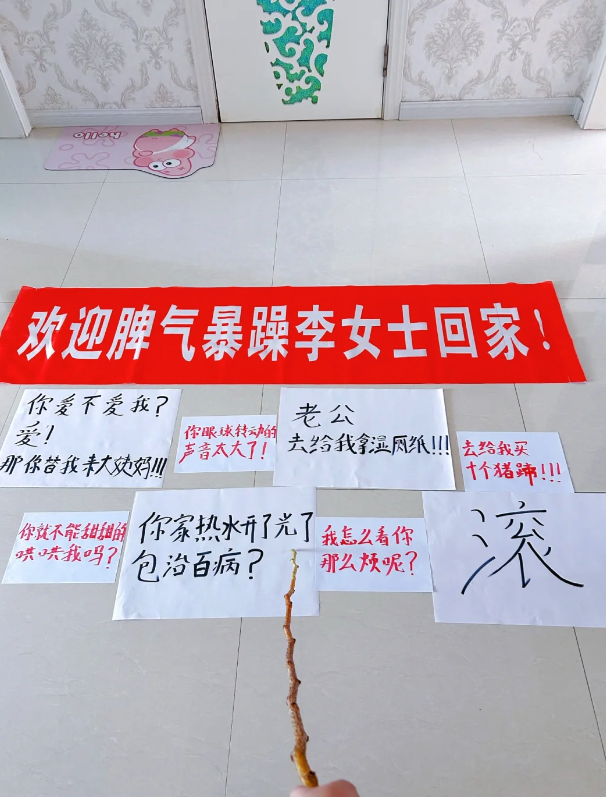 hello
欢迎脾气暴躁李女士回家！
你爱不爱我？
爱！
那你替我来大姨妈!!!
你眼球转动的
声音太大了！
老公
去给我拿湿厕纸!!!
去给我买
十个猪蹄!!!
你就不能甜甜的
哄哄我吗？
你家热水开了光了
包治百病？
我怎么看你
那么烦呢？
滚